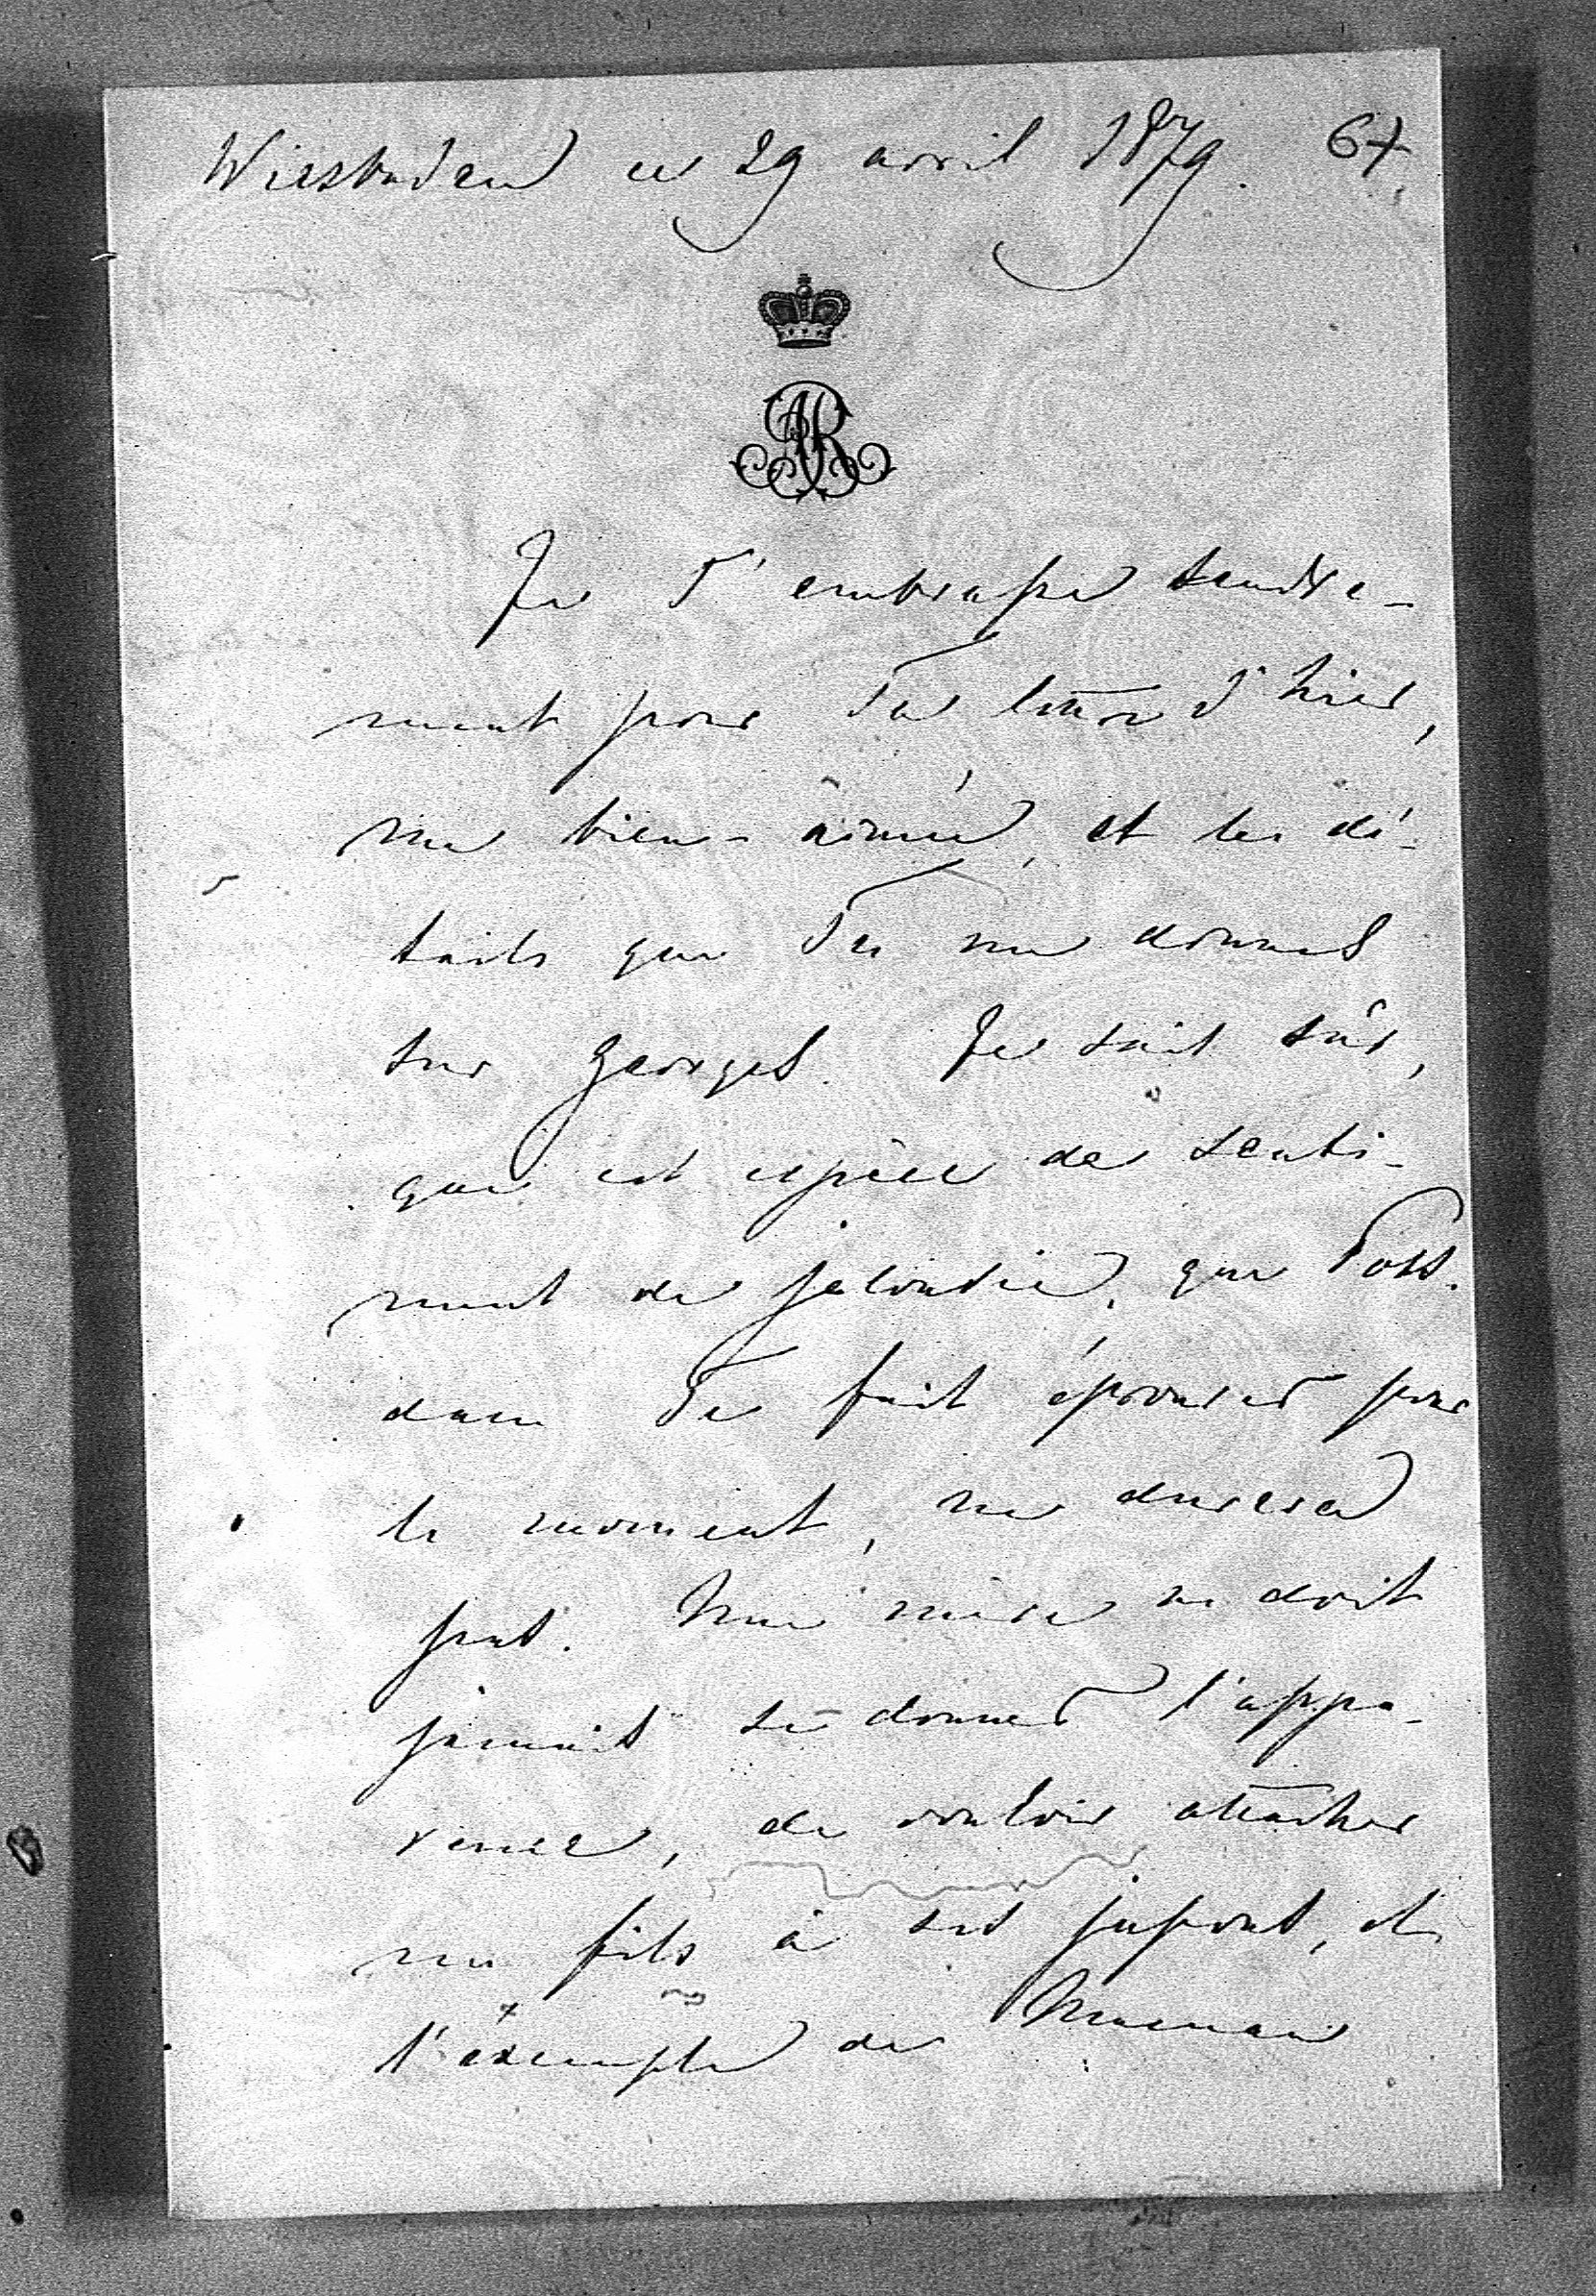 Wiesbaden ce 29 avril 1879. 67.
AR
Je T'embrasse tendre-
ment pour Ta lettre d'hier,
ma bien-aimée, et les dé-
tails que Tu me donnes
sur Georges. Je suis sûr,
que cet espèce de senti-
ment de jalousie, que Pots-
dam Te fait éprouver pour
le moment, ne durera
pas. Une mère ne doit
jamais se donner l'appa-
rence, de vouloir attacher
un fils à ses jupons, et
l'éxemple de Maman